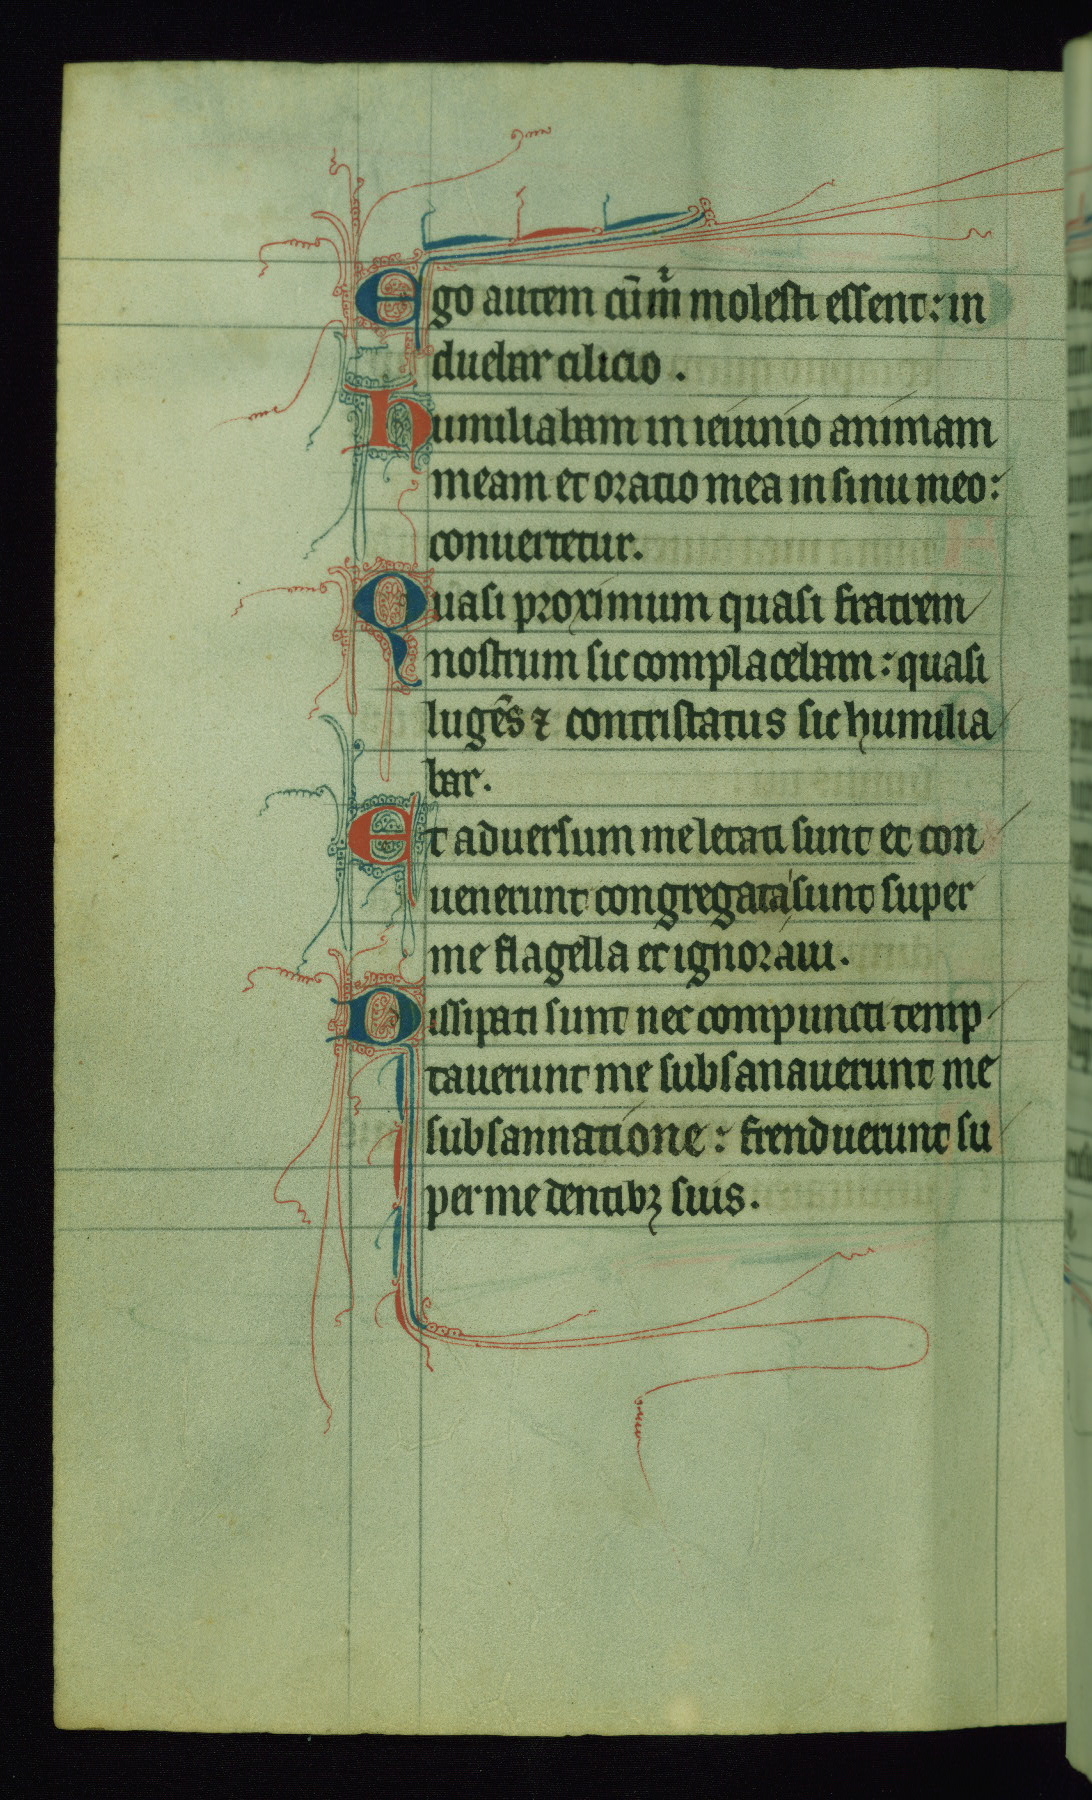 Ego autem cū m̄ molesti essent: in
duebar cilicio.
Humiliabam in ieiunio animam
meam et oratio mea in sinu meo:
conuertetur.
Quasi proximum quasi fratrem
nostrum sic complacebam: quasi
lugēs ⁊ contristatus sic humilia
bar.
Et aduersum me letati sunt et con
uenerunt congregata sunt super
me flagella et ignoraui.
Dissipati sunt nec compuncti temp
tauerunt me subsanauerunt me
subsannatione: frenduerunt su
per me dentibꝫ suis.